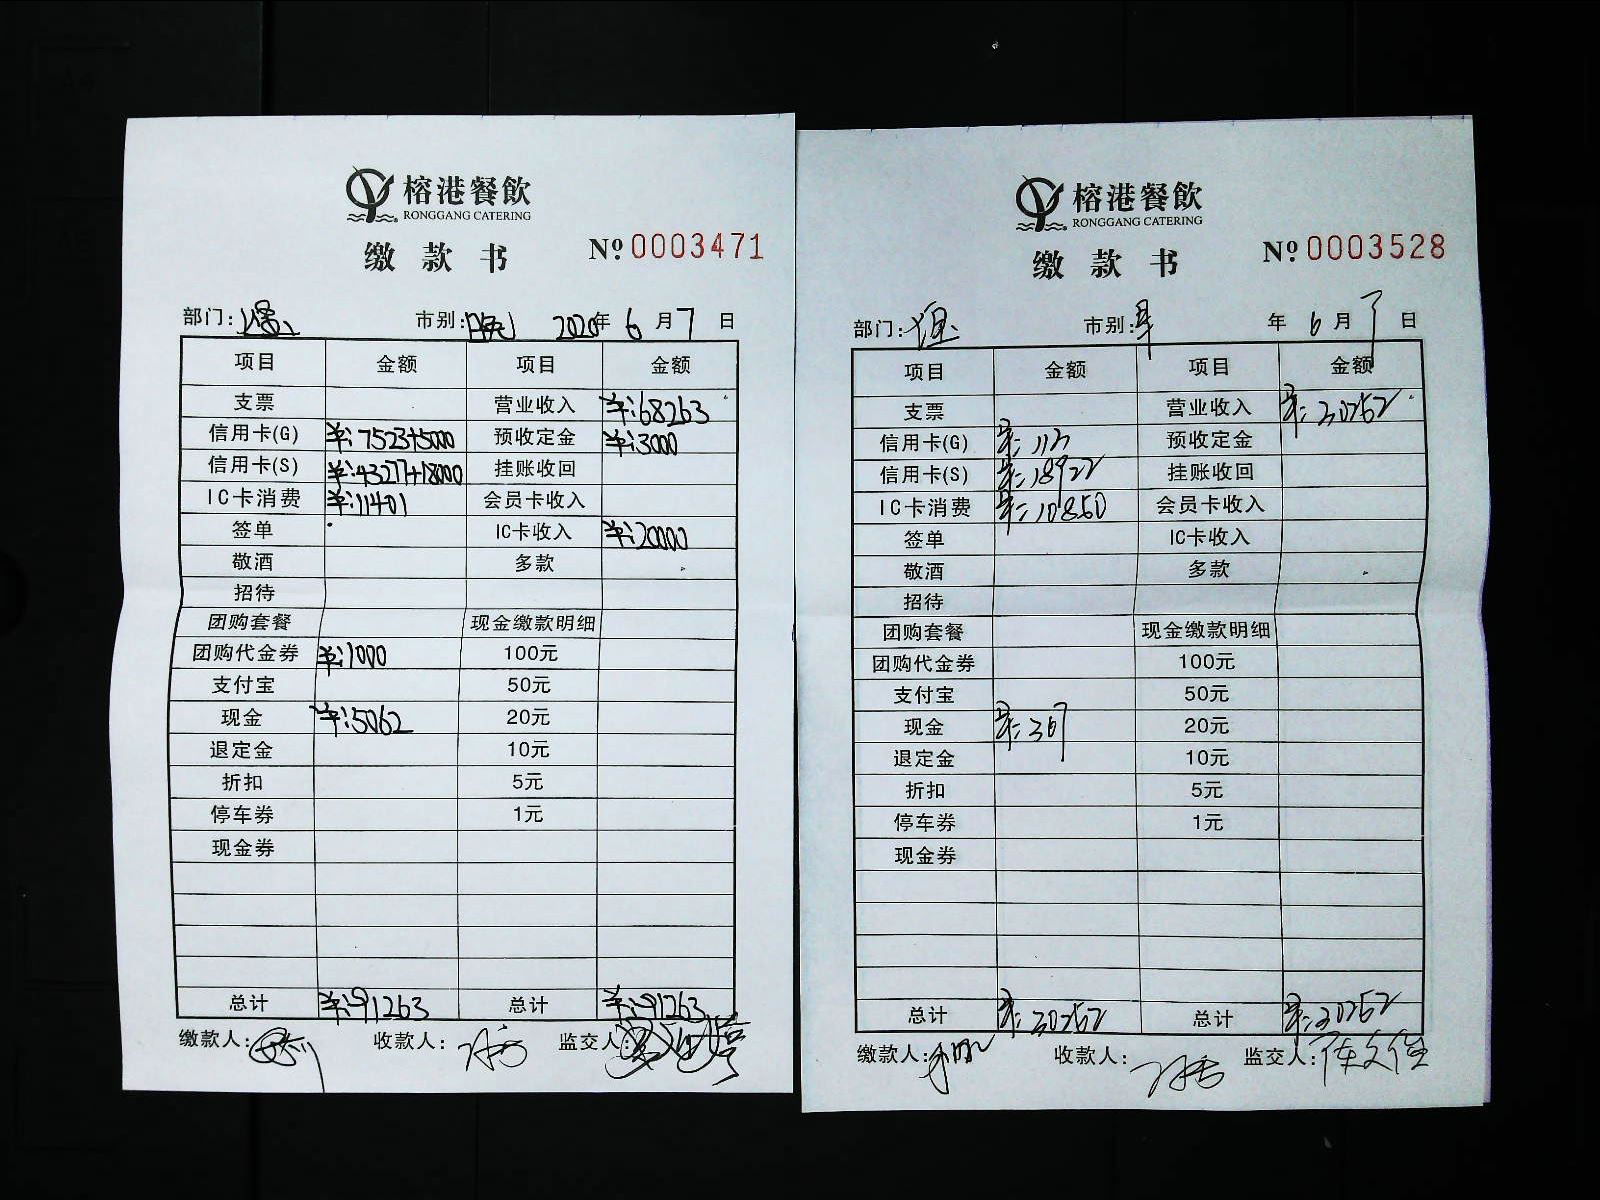 榕港餐飲
RONGGANG CATERING
缴款书 Nº 0003471
部门: 市别:晚 2020年 6月7日
项目 金额 项目 金额
支票 营业收入 ¥:68263
信用卡(G) ¥:7523+5000 预收定金 ¥:3000
信用卡(S) ¥:43277+18000 挂账收回
IC卡消费 ¥:11401 会员卡收入
签单 IC卡收入 ¥:20000
敬酒 多款
招待
团购套餐 现金缴款明细
团购代金券 ¥:1000 100元
支付宝 50元
现金 ¥:5062 20元
退定金 10元
折扣 5元
停车券 1元
现金券
总计 ¥:91263 总计 ¥:91263
缴款人: 收款人: 监交人:
榕港餐飲
RONGGANG CATERING
缴款书 Nº 0003528
部门: 市别:早 年 6月7日
项目 金额 项目 金额
支票 营业收入 ¥:30252
信用卡(G) ¥:113 预收定金
信用卡(S) ¥:18922 挂账收回
IC卡消费 ¥:10850 会员卡收入
签单 IC卡收入
敬酒 多款
招待
团购套餐 现金缴款明细
团购代金券 100元
支付宝 50元
现金 ¥:367 20元
退定金 10元
折扣 5元
停车券 1元
现金券
总计 ¥:30252 总计 ¥:30252
缴款人: 收款人: 监交人:陈文佳